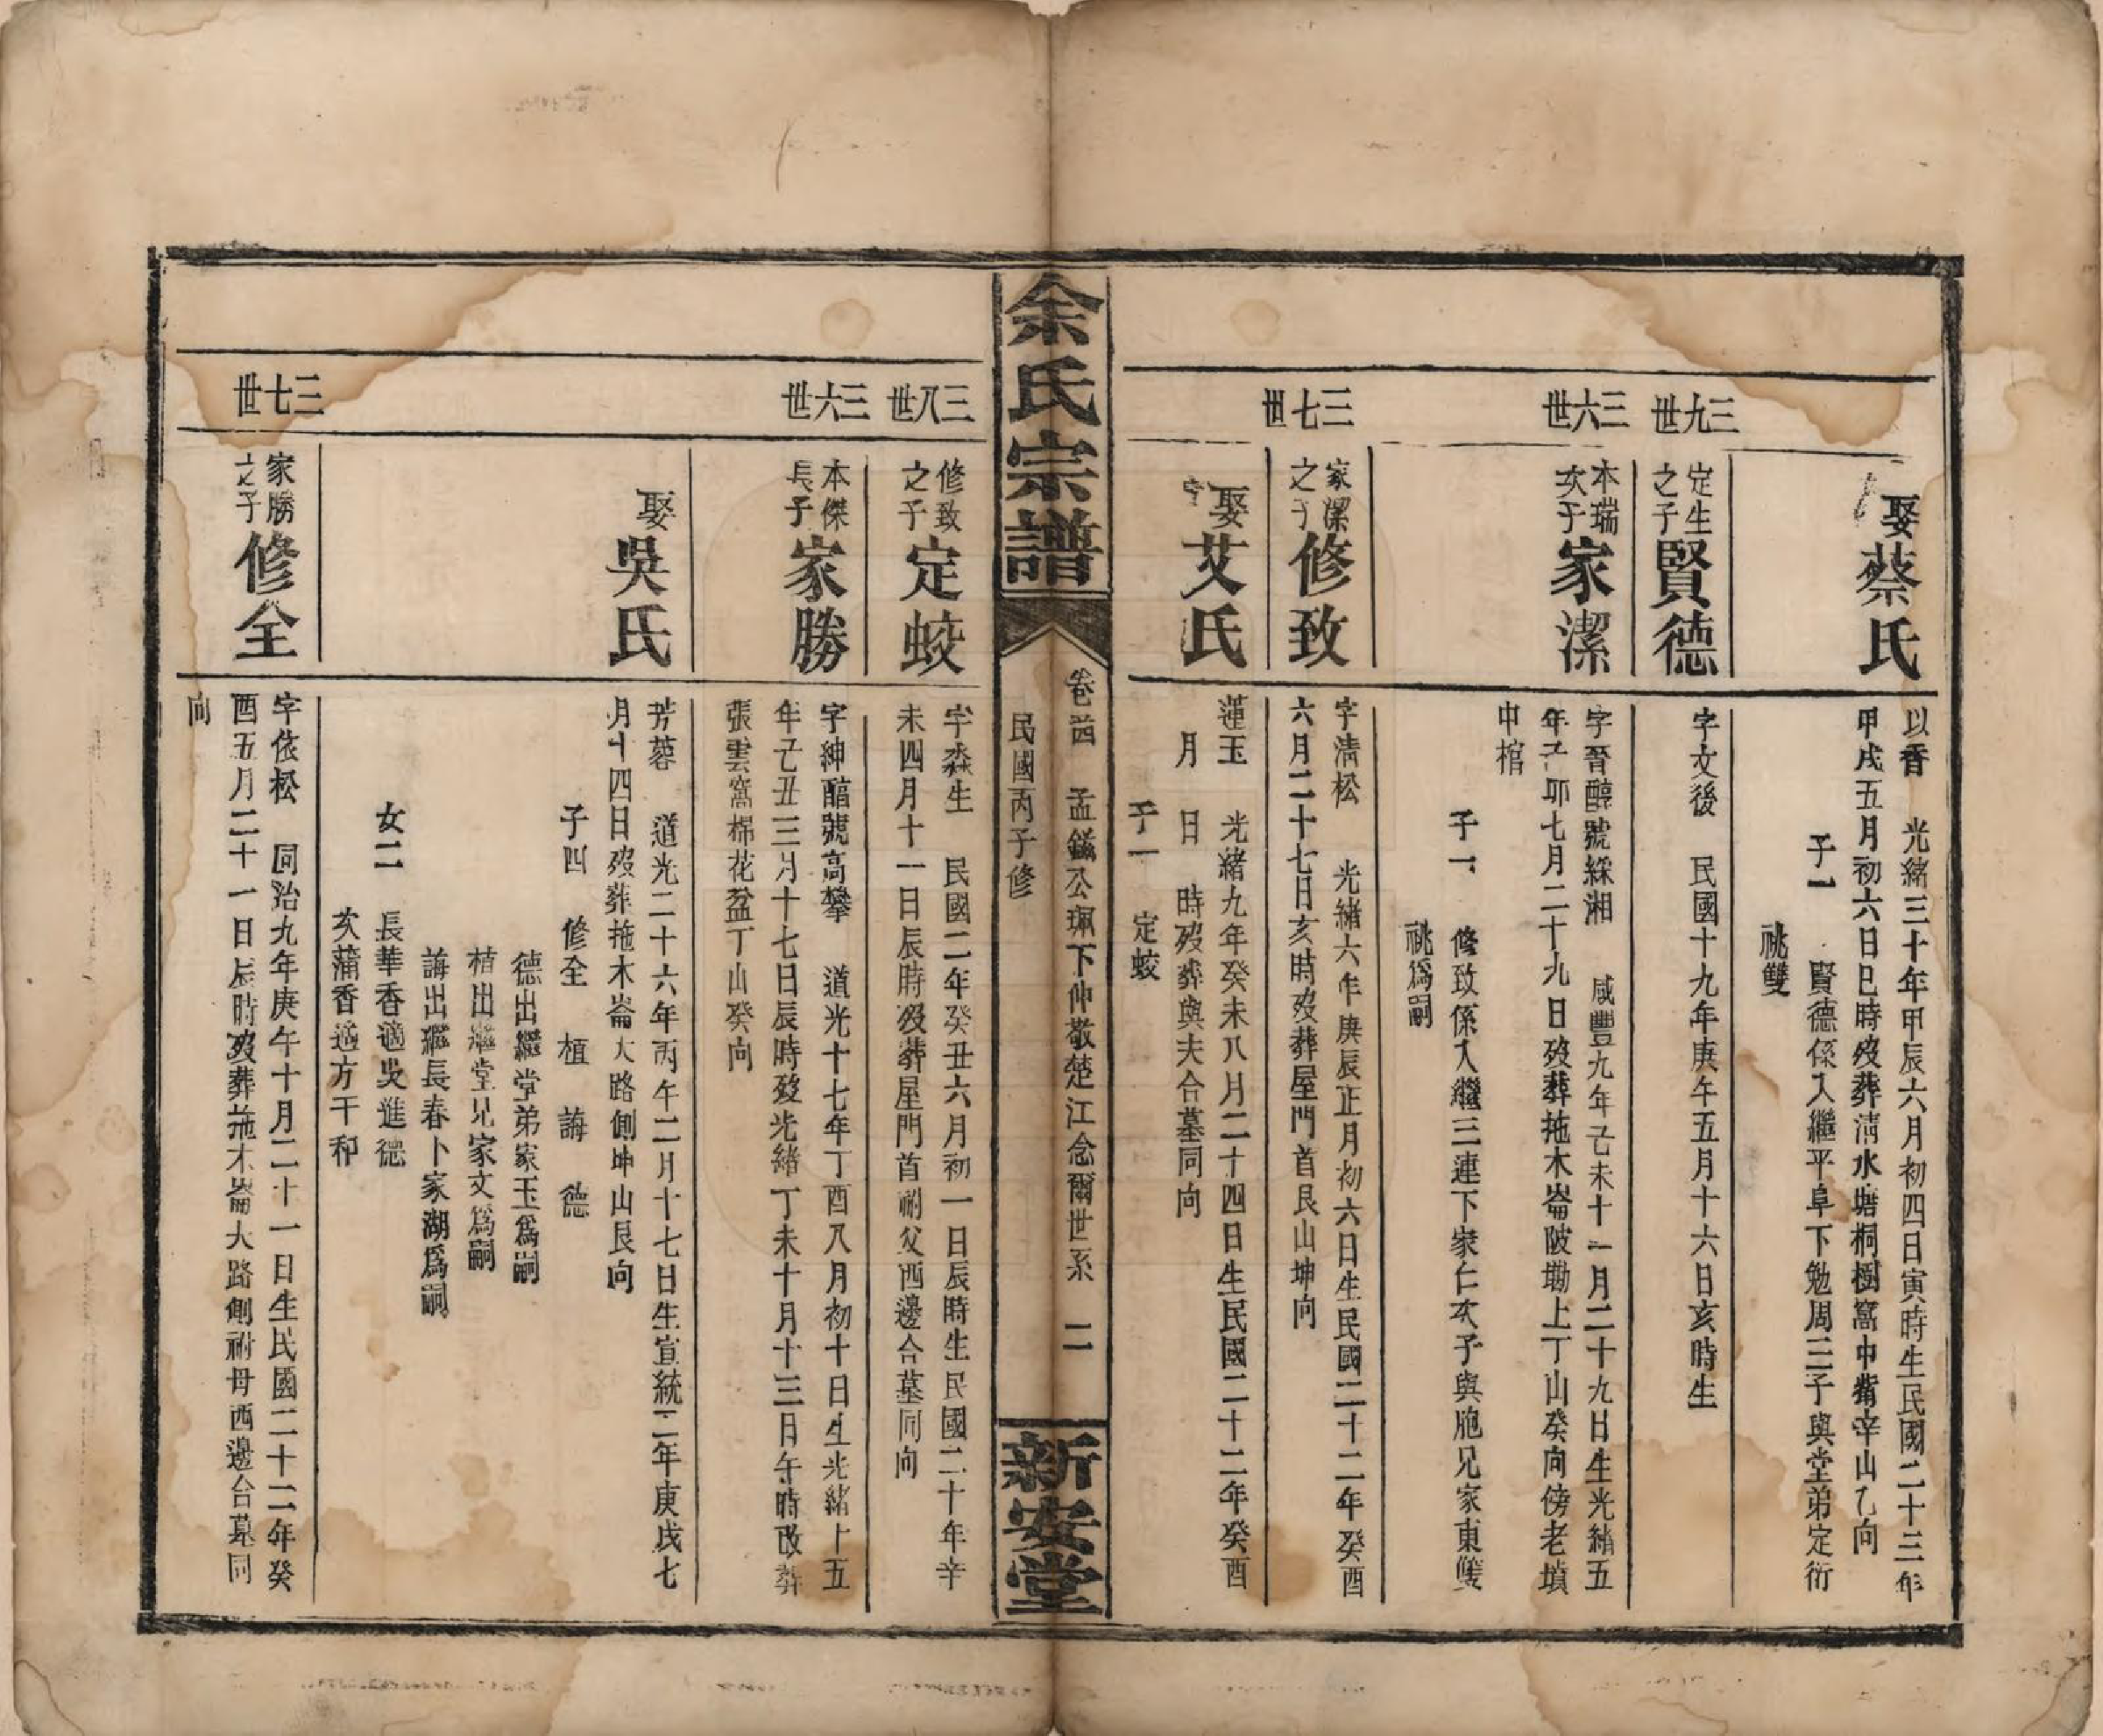 娶蔡氏
以香　光緒三十年甲辰六月初四日寅時生民國二十三年
甲戌五月初六日巳時歿葬淸水塘桐樹窩中觜辛山乙向
子一　賢德係入繼平阜下勉周三子與堂弟定衍
祧雙
三九世
定生之子賢德
字文後　民國十九年庚午五月十六日亥時生
三六世
本瑞次子家潔
字晉醇號綵湘　咸豐九年己未十一月二十九日生光緒五
年己卯七月二十九日歿葬拖木崙陂塝上丁山癸向傍老墳
中棺
子一　修致係入繼三連下家仁次子與胞兄家東雙
祧爲嗣
三七世
家潔之子修致
字淸松　光緒六年庚辰正月初六日生民國二十二年癸酉
六月二十七日亥時歿葬屋門首艮山坤向
娶艾氏
蓮玉　光緒九年癸未八月二十四日生民國二十二年癸酉
月　日　時歿葬與夫合墓同向
子一　定蛟
余氏宗譜
卷首　孟鎰公珮下仲敬楚江念爾世系　二
民國丙子修
新安堂
三八世
修致之子定蛟
字森生　民國二年癸丑六月初一日辰時生民國二十年辛
未四月十一日辰時歿葬屋門首祔父西邊合墓同向
三六世
本傑長子家勝
字紳醕號高攀　道光十七年丁酉八月初十日生光緒十五
年己丑三月十七日辰時歿光緒丁未十月十三日午時改葬
張雲窩棉花盆丁山癸向
娶吳氏
芳蓉　道光二十六年丙午二月十七日生宣統二年庚戌七
月十四日歿葬拖木崙大路側坤山艮向
子四　修全　植　誨　德
德出繼堂弟家玉爲嗣
植出繼堂兄家文爲嗣
誨出繼長春卜家湖爲嗣
女二　長華香適吳進德
次蒲香適方干和
三七世
家勝之子修全
字依松　同治九年庚午十月二十一日生民國二十二年癸
酉五月二十一日辰時歿葬拖木崙大路側祔母西邊合墓同
向